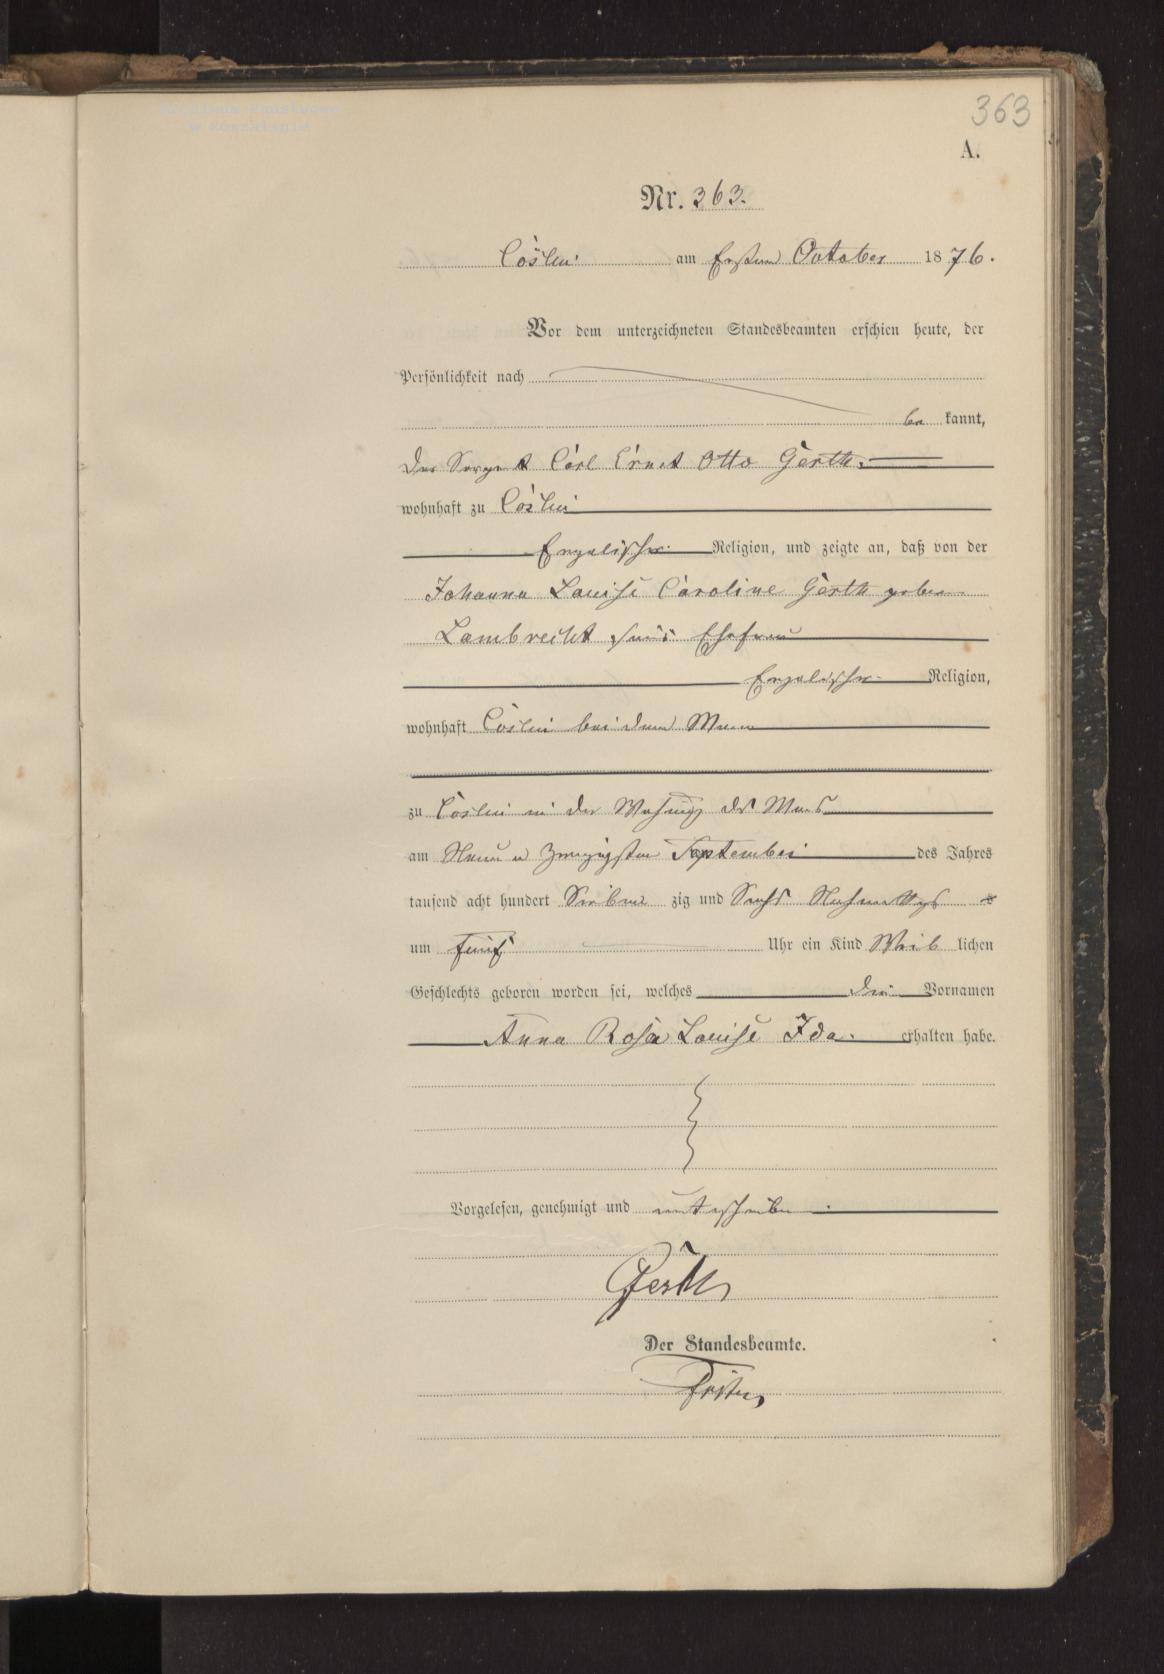 Archiwum Państwowe
w Koszalinie
363
A.
Nr. 363.
Cöslin am Ersten October 1876.
Vor dem unterzeichneten Standesbeamten erschien heute, der
Persönlichkeit nach
be kannt,
Der Sergent Carl Ernst Otto Gerth.
wohnhaft zu Cöslin
Religion, und zeigte an, daß von der
Johanna Louise Caroline Gerth geboren
Lambrecht seine Ehefrau
Religion,
wohnhaft Cöslin bei dem Mann
zu Cöslin in der Wohnung des Manns
am Neun u zwanzigsten September des Jahres
tausend acht hundert Sieben zig und Sechs Nachmittags
um fünf Uhr ein Kind Weib lichen
Geschlechts geboren worden sei, welches die Vornamen
Anna Rosa Louise Ida. erhalten habe.
Vorgelesen, genehmigt und unterschrieben.
Gerth
Der Standesbeamte.